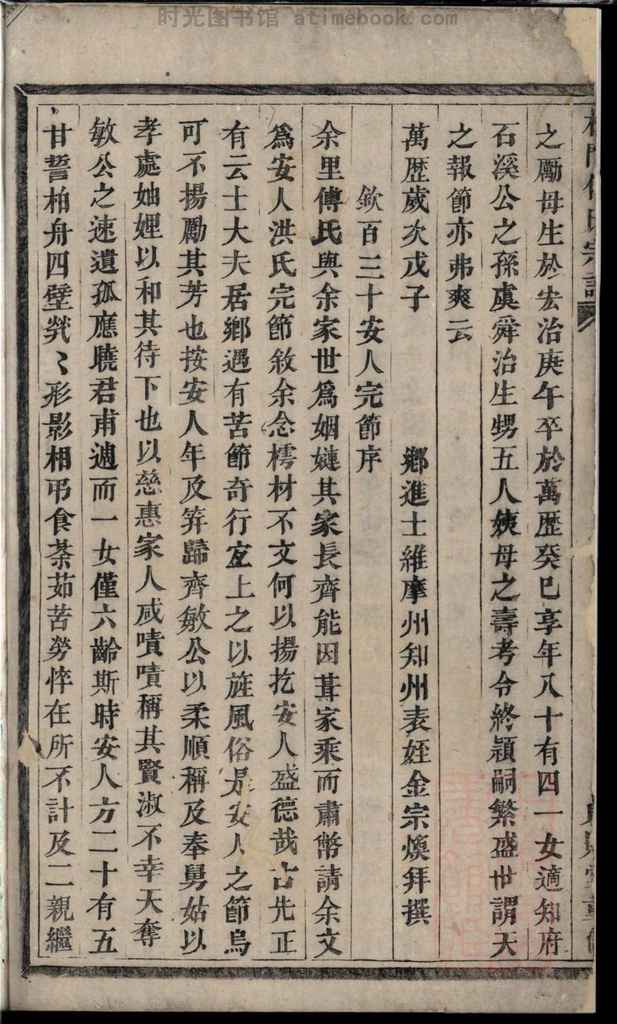 时光图书馆 atimebook.com
之勵母生於宏治庚午卒於萬歷癸巳享年八十有四一女適知府
石溪公之孫虞舜治生甥五人姨母之壽考令終穎嗣繁盛世謂天
之報節亦弗爽云
萬歷歲次戊子 鄉進士維摩州知州表姪金宗煥拜撰
欽百三十安人完節序
余里傅氏與余家世為姻婕其家長齊能因葺家乘而肅幣請余文
爲安人洪氏完節敘余念樗材不文何以揚扢安人盛德哉古先正
有云士大夫居鄉遇有苦節奇行宜上之以旌風俗是安人之節烏
可不揚勵其芳也按安人年及笄歸齊敏公以柔順稱及奉舅姑以
孝處妯娌以和其待下也以慈惠家人咸嘖嘖稱其賢淑不幸天奪
敏公之速遺孤應曉君甫週而一女僅六齡斯時安人方二十有五
甘誓柏舟四壁煢〻形影相弔食荼茹苦勞悴在所不計及二親繼